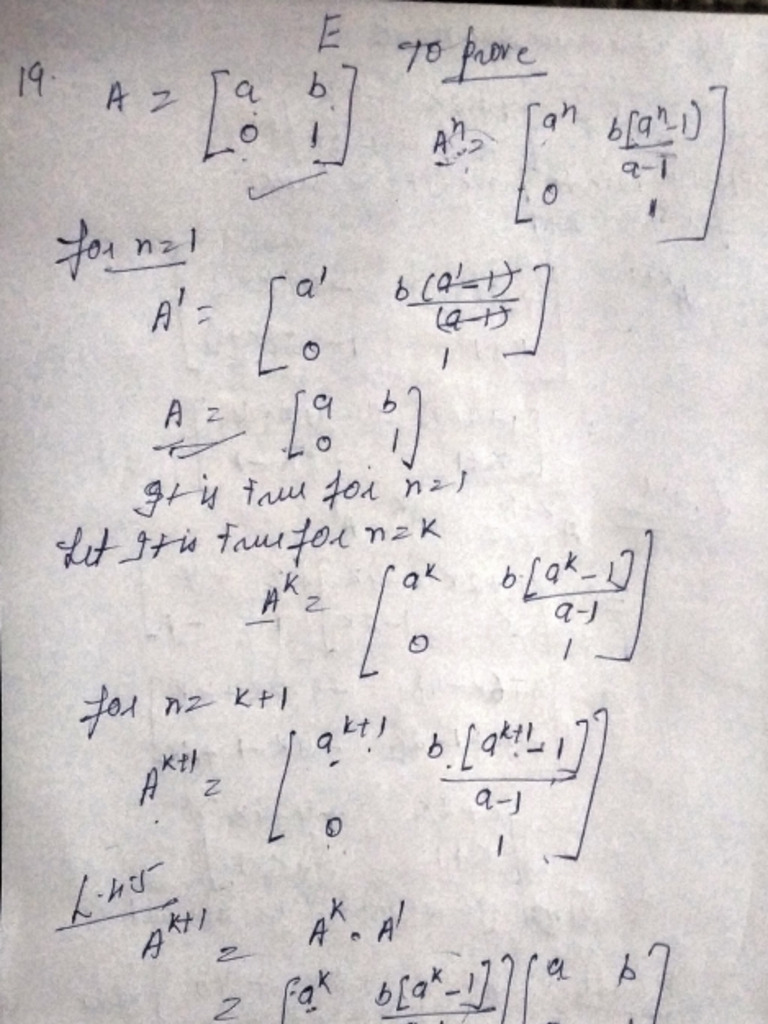 E To prove
19. A = [a b
0 1] Aⁿ = [aⁿ b[aⁿ-1]/a-1
0 1]
for n=1
A' = [a' b(a'-1)/(a-1)
0 1]
A = [a b
0 1]
It is true for n=1
Let It is true for n=k
Aᵏ = [aᵏ b.[aᵏ-1]/a-1
0 1]
for n= k+1
Aᵏ⁺¹ = [aᵏ⁺¹ b.[aᵏ⁺¹-1]/a-1
0 1]
L.H.S
Aᵏ⁺¹ = Aᵏ. A'
= [aᵏ b[aᵏ-1] ] [a b ]